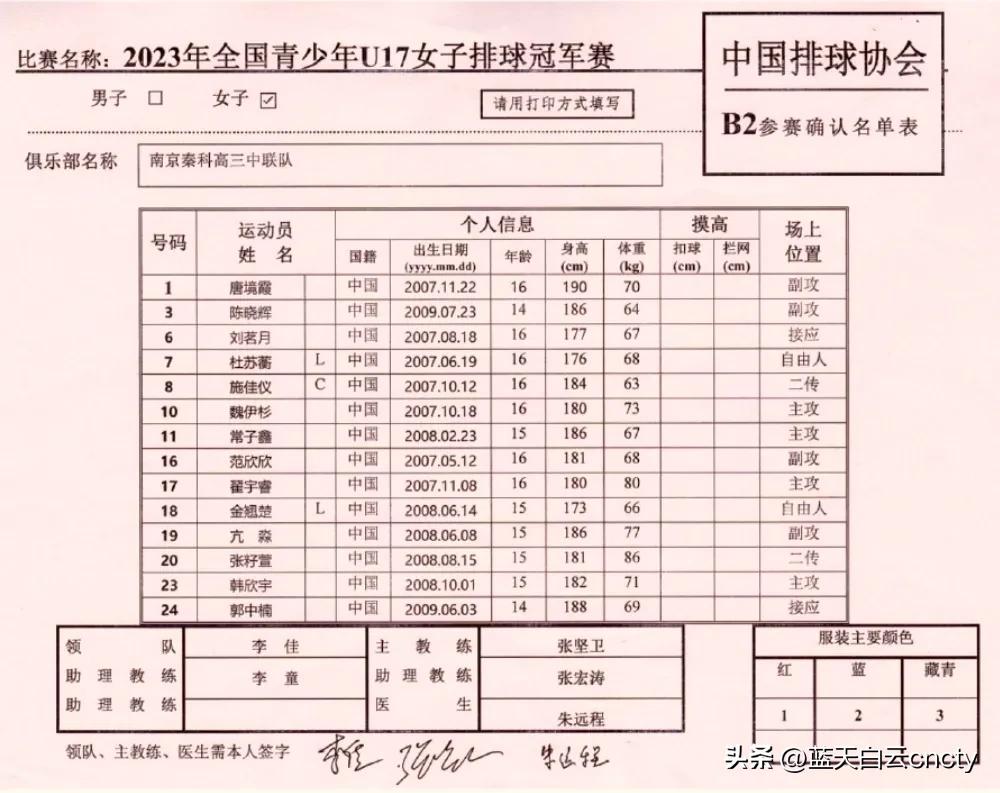 比赛名称：2023年全国青少年U17女子排球冠军赛
中国排球协会
B2参赛确认名单表
男子 □ 女子 ☑
请用打印方式填写
俱乐部名称 南京秦科高三中联队
号码 运动员姓名 个人信息 摸高 场上位置
国籍 出生日期(yyyy.mm.dd) 年龄 身高(cm) 体重(kg) 扣球(cm) 拦网(cm)
1 唐境霞 中国 2007.11.22 16 190 70 副攻
3 陈晓辉 中国 2009.07.23 14 186 64 副攻
6 刘茗月 中国 2007.08.18 16 177 67 接应
7 杜苏蘅 L 中国 2007.06.19 16 176 68 自由人
8 施佳仪 C 中国 2007.10.12 16 184 63 二传
10 魏伊杉 中国 2007.10.18 16 180 73 主攻
11 常子鑫 中国 2008.02.23 15 186 67 主攻
16 范欣欣 中国 2007.05.12 16 181 68 副攻
17 翟宇睿 中国 2007.11.08 16 180 80 主攻
18 金翘楚 L 中国 2008.06.14 15 173 66 自由人
19 亢 淼 中国 2008.06.08 15 186 77 副攻
20 张籽萱 中国 2008.08.15 15 181 86 二传
23 韩欣宇 中国 2008.10.01 15 182 71 主攻
24 郭中楠 中国 2009.06.03 14 188 69 接应
领 队 李 佳 主 教 练 张坚卫
助 理 教 练 李 童 助 理 教 练 张宏涛
助 理 教 练 医 生 朱远程
服装主要颜色
红 蓝 藏青
1 2 3
领队、主教练、医生需本人签字 李佳 朱远程
头条 @蓝天白云cncty